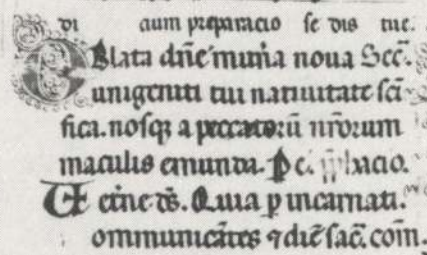 di auum preparacio se dis tue.
Oblata dñe munĩa noua Secr̃.
unigeniti tui natiuitate scĩ-
fica. nosqꝫ a peccatorũ nr̃orum
maculis emunda. P̱
V etñe ds̃. Quia ꝑ incarnati.
ommunicãtes ⁊ diẽ sac̃. com̃.